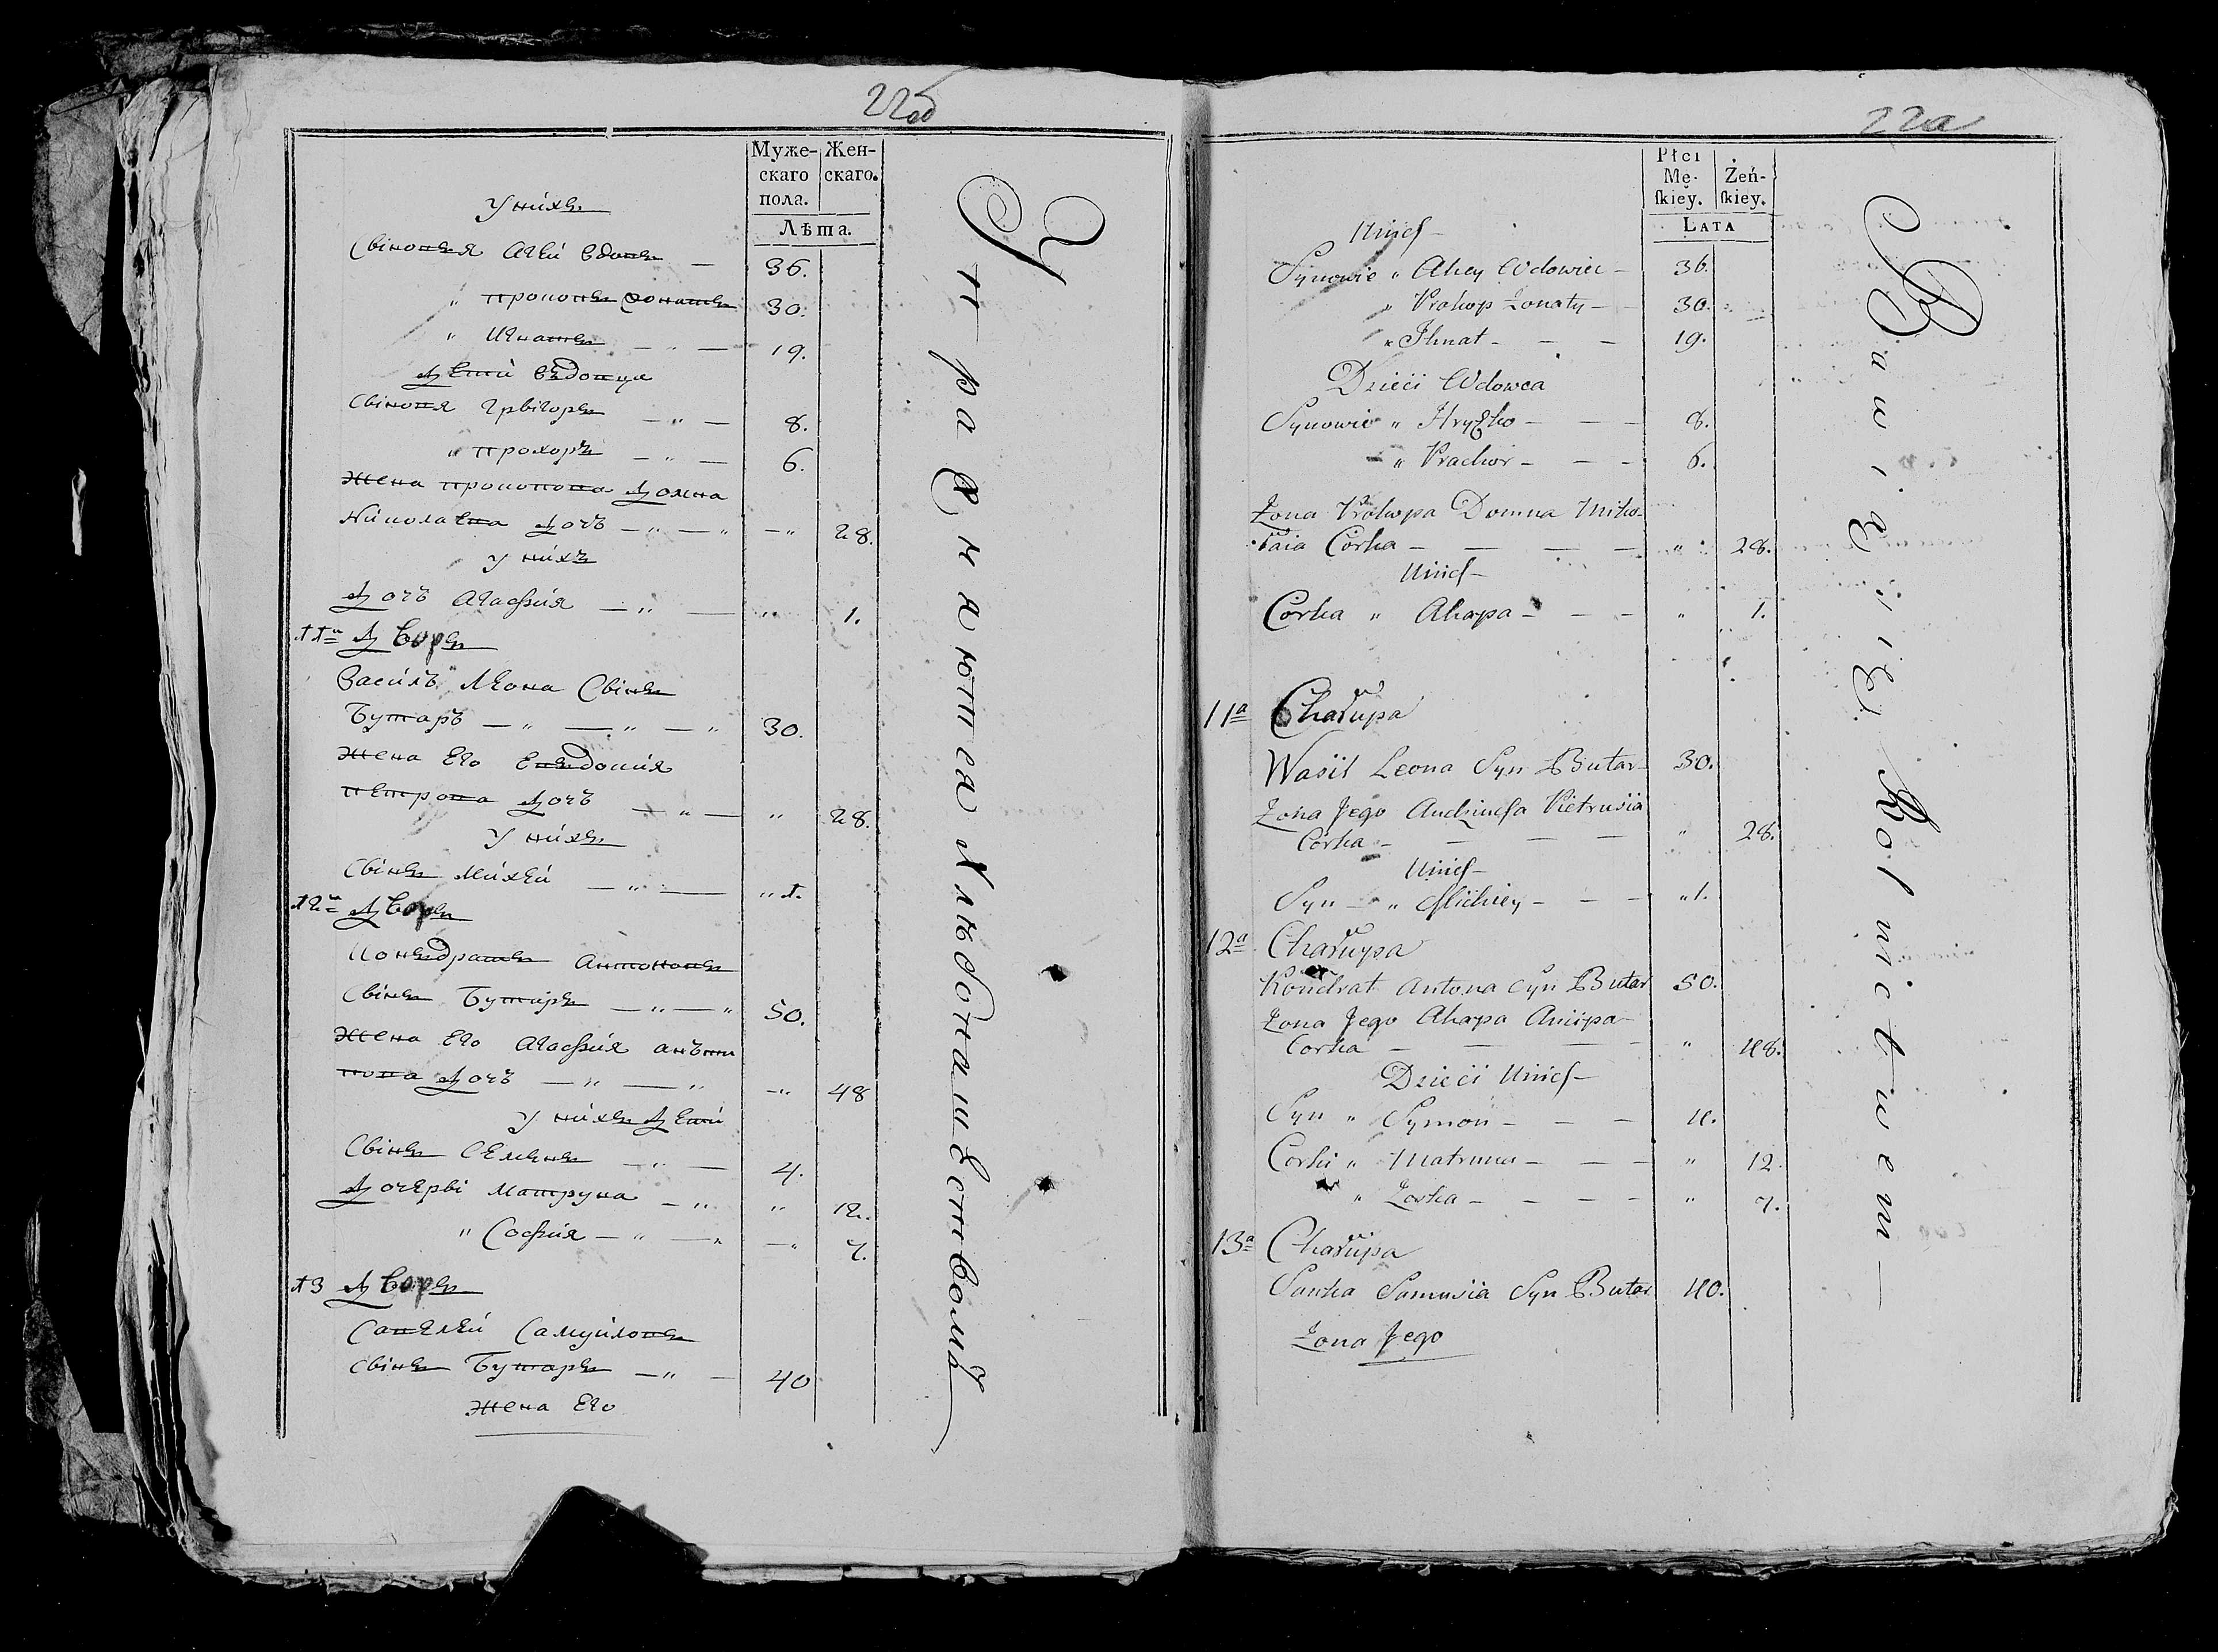 22об
Муже-
скаго
пола.
Жен-
скаго.
Лѣта.
У нихъ
Свіновья Агей вдовъ — 36.
" Прокопъ жонатъ 30.
" Игнатъ — " — 19.
Дети вдовца
Свіновя Грвігоръ — " — 8.
" Прохоръ — " — 6.
Жена Прокопова Домна
Николаева Дочъ — " — " — " 28.
У нихъ
Дочъ Агафия — " — " 1.
11я Дворъ
Василъ Леона Свінъ
Бутаръ — " — " — " 30.
Жена Его Евъдокия
Петрова Дочъ — " — " 28.
У нихъ
Свінъ Михей — " — " 1.
12я Дворъ
Конъдратъ Антоновъ
Свінъ Бутаръ — " — " 50.
Жена Его Агафия анъти
пова Дочъ — " — " — " 48
У нихъ Дети
Свінъ Семенъ — " — 4.
Дочерві Матруна — " " 12.
" София — " — " — " 7.
13 Дворъ
Савелей Самуйловъ
свінъ Бутаръ — " — 40
Жена Его
Упражнаютса Хлѣбопашествомъ
22а
Płci
Mę-
ſkiey.
Żeń-
ſkiey.
LATA
Unich
Synowie " Ahey Wdowiec — 36.
" Prokop Żonaty — 30.
" Ihnat — — — 19.
Dzieci Wdowca
Synowie " Hryszko — — — 8.
" Prachor — — — 6.
Żona Prokopa Domna Miko-
łaia Corka — — — — " 28.
Unich
Corka " Ahapa — — — " 1.
11a Chałupa
Wasil Leona Syn Butar 30.
Żona Jego Audziucha Pietrusia
Córka — — — — " 28.
Unich
Syn — " Michiey — — — " 1.
12a Chałupa
Kondrat Antona Syn Butar 50.
Żona Jego Ahapa Ancipa
Corka — — — — " 48.
Dzieci Unich
Syn " Symon — — — 4.
Corki " Matruna — — — " 12.
" Zoska — — — — " 7.
13a Chałupa
Sawka Samusia Syn Butar 40.
Żona Jego
Bawią się Rolnictwem —